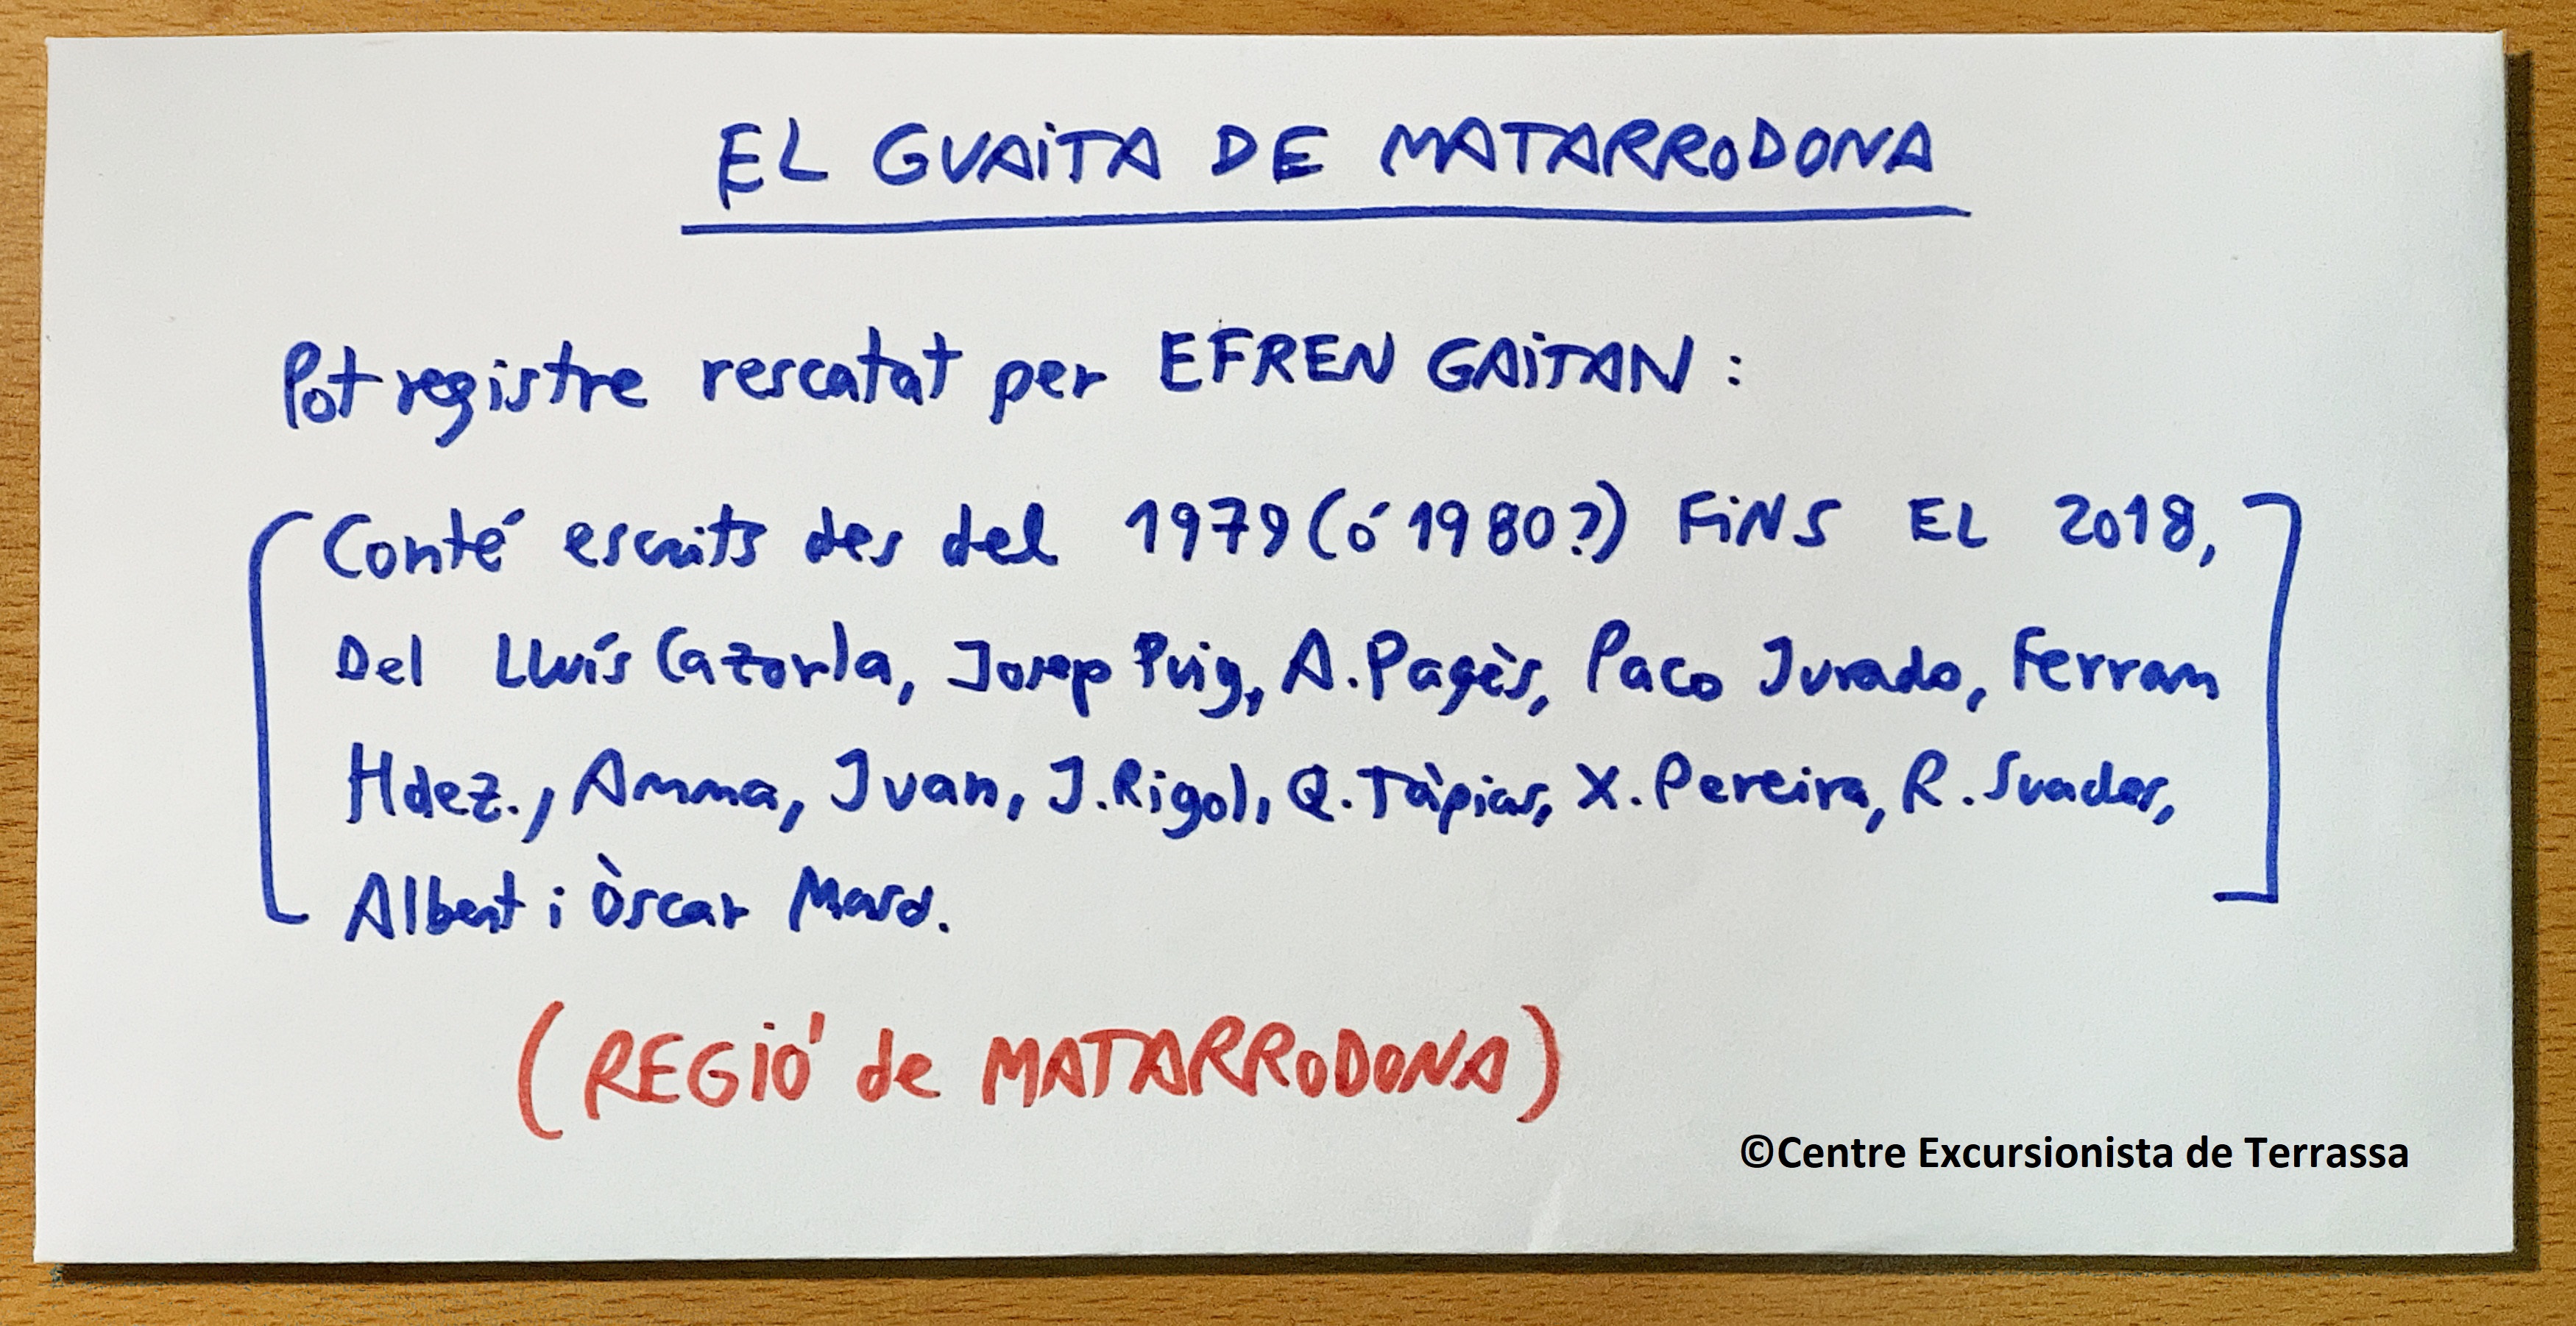 EL GUAITA DE MATARRODONA
Pot registre rescatat per EFREN GAITAN :
Conté escrits des del 1979 (ó 1980?) FINS EL 2018,
Del Lluís Cazorla, Josep Puig, A. Pagès, Paco Jurado, Ferran
Hdez., Anna, Juan, J. Rigol, Q. Tàpias, X. Pereira, R. Suades,
Albert i Òscar Masó.
(REGIÓ de MATARRODONA)
©Centre Excursionista de Terrassa